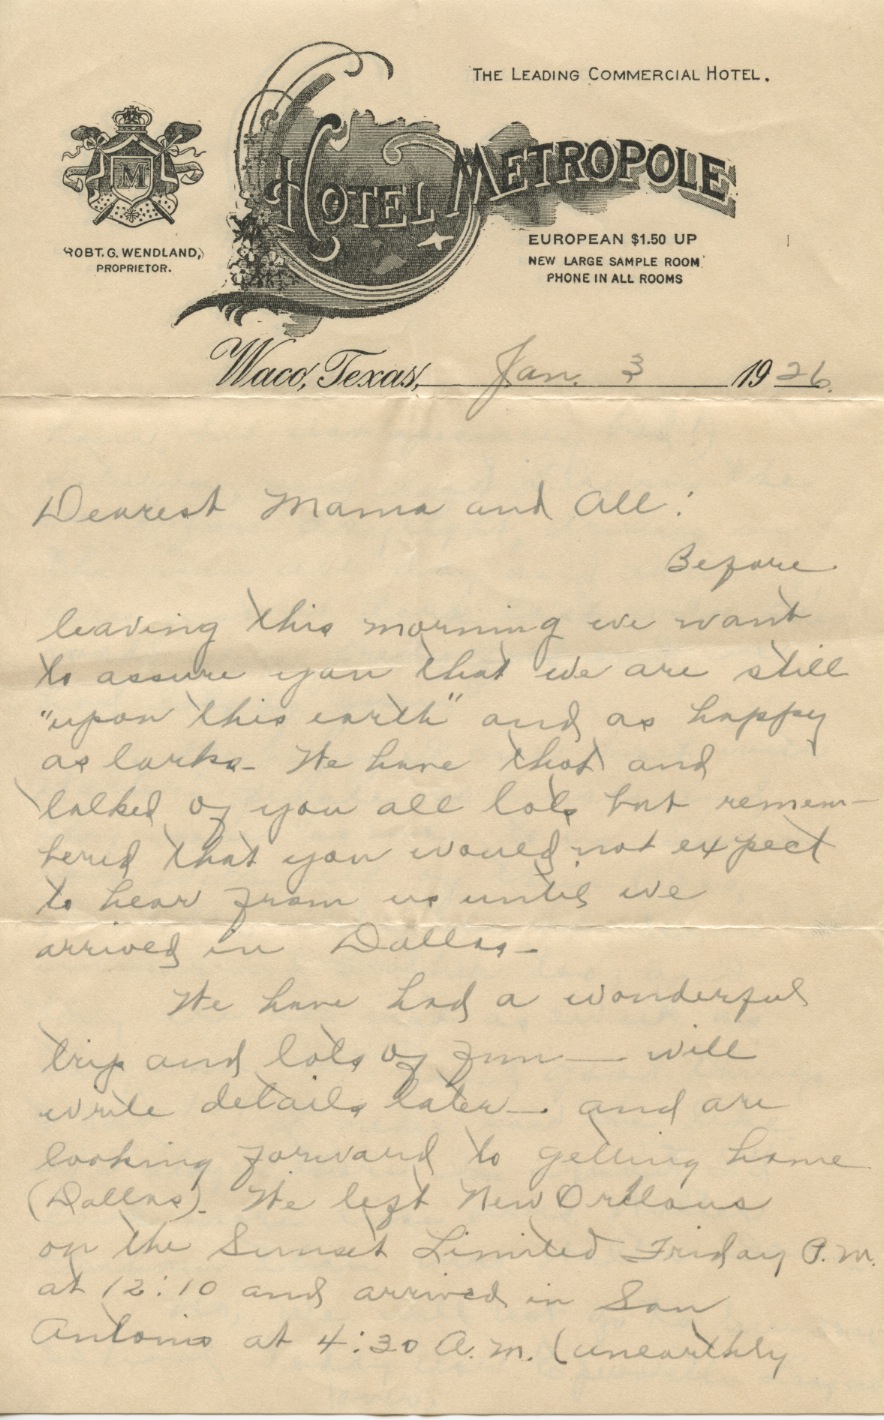 THE LEADING COMMERCIAL HOTEL.
M
HOTEL METROPOLE
ROBT. G. WENDLAND,
PROPRIETOR.
EUROPEAN $1.50 UP
NEW LARGE SAMPLE ROOM
PHONE IN ALL ROOMS
Waco, Texas, Jan. 3 1926.
Dearest Mama and All:
Before
leaving this morning we want
to assure you that we are still
"upon this earth" and as happy
as larks- We have that and
talked of you all lots but remem-
bered that you would not expect
to hear from us until we
arrived in Dallas-
We have had a wonderful
trip and lots of fun - will
write details later-. and are
looking forward to getting home
(Dallas). We left New Orleans
on the Sunset Limited Friday P.M.
at 12:10 and arrived in San
Antonio at 4:30 A.M. (unearthly